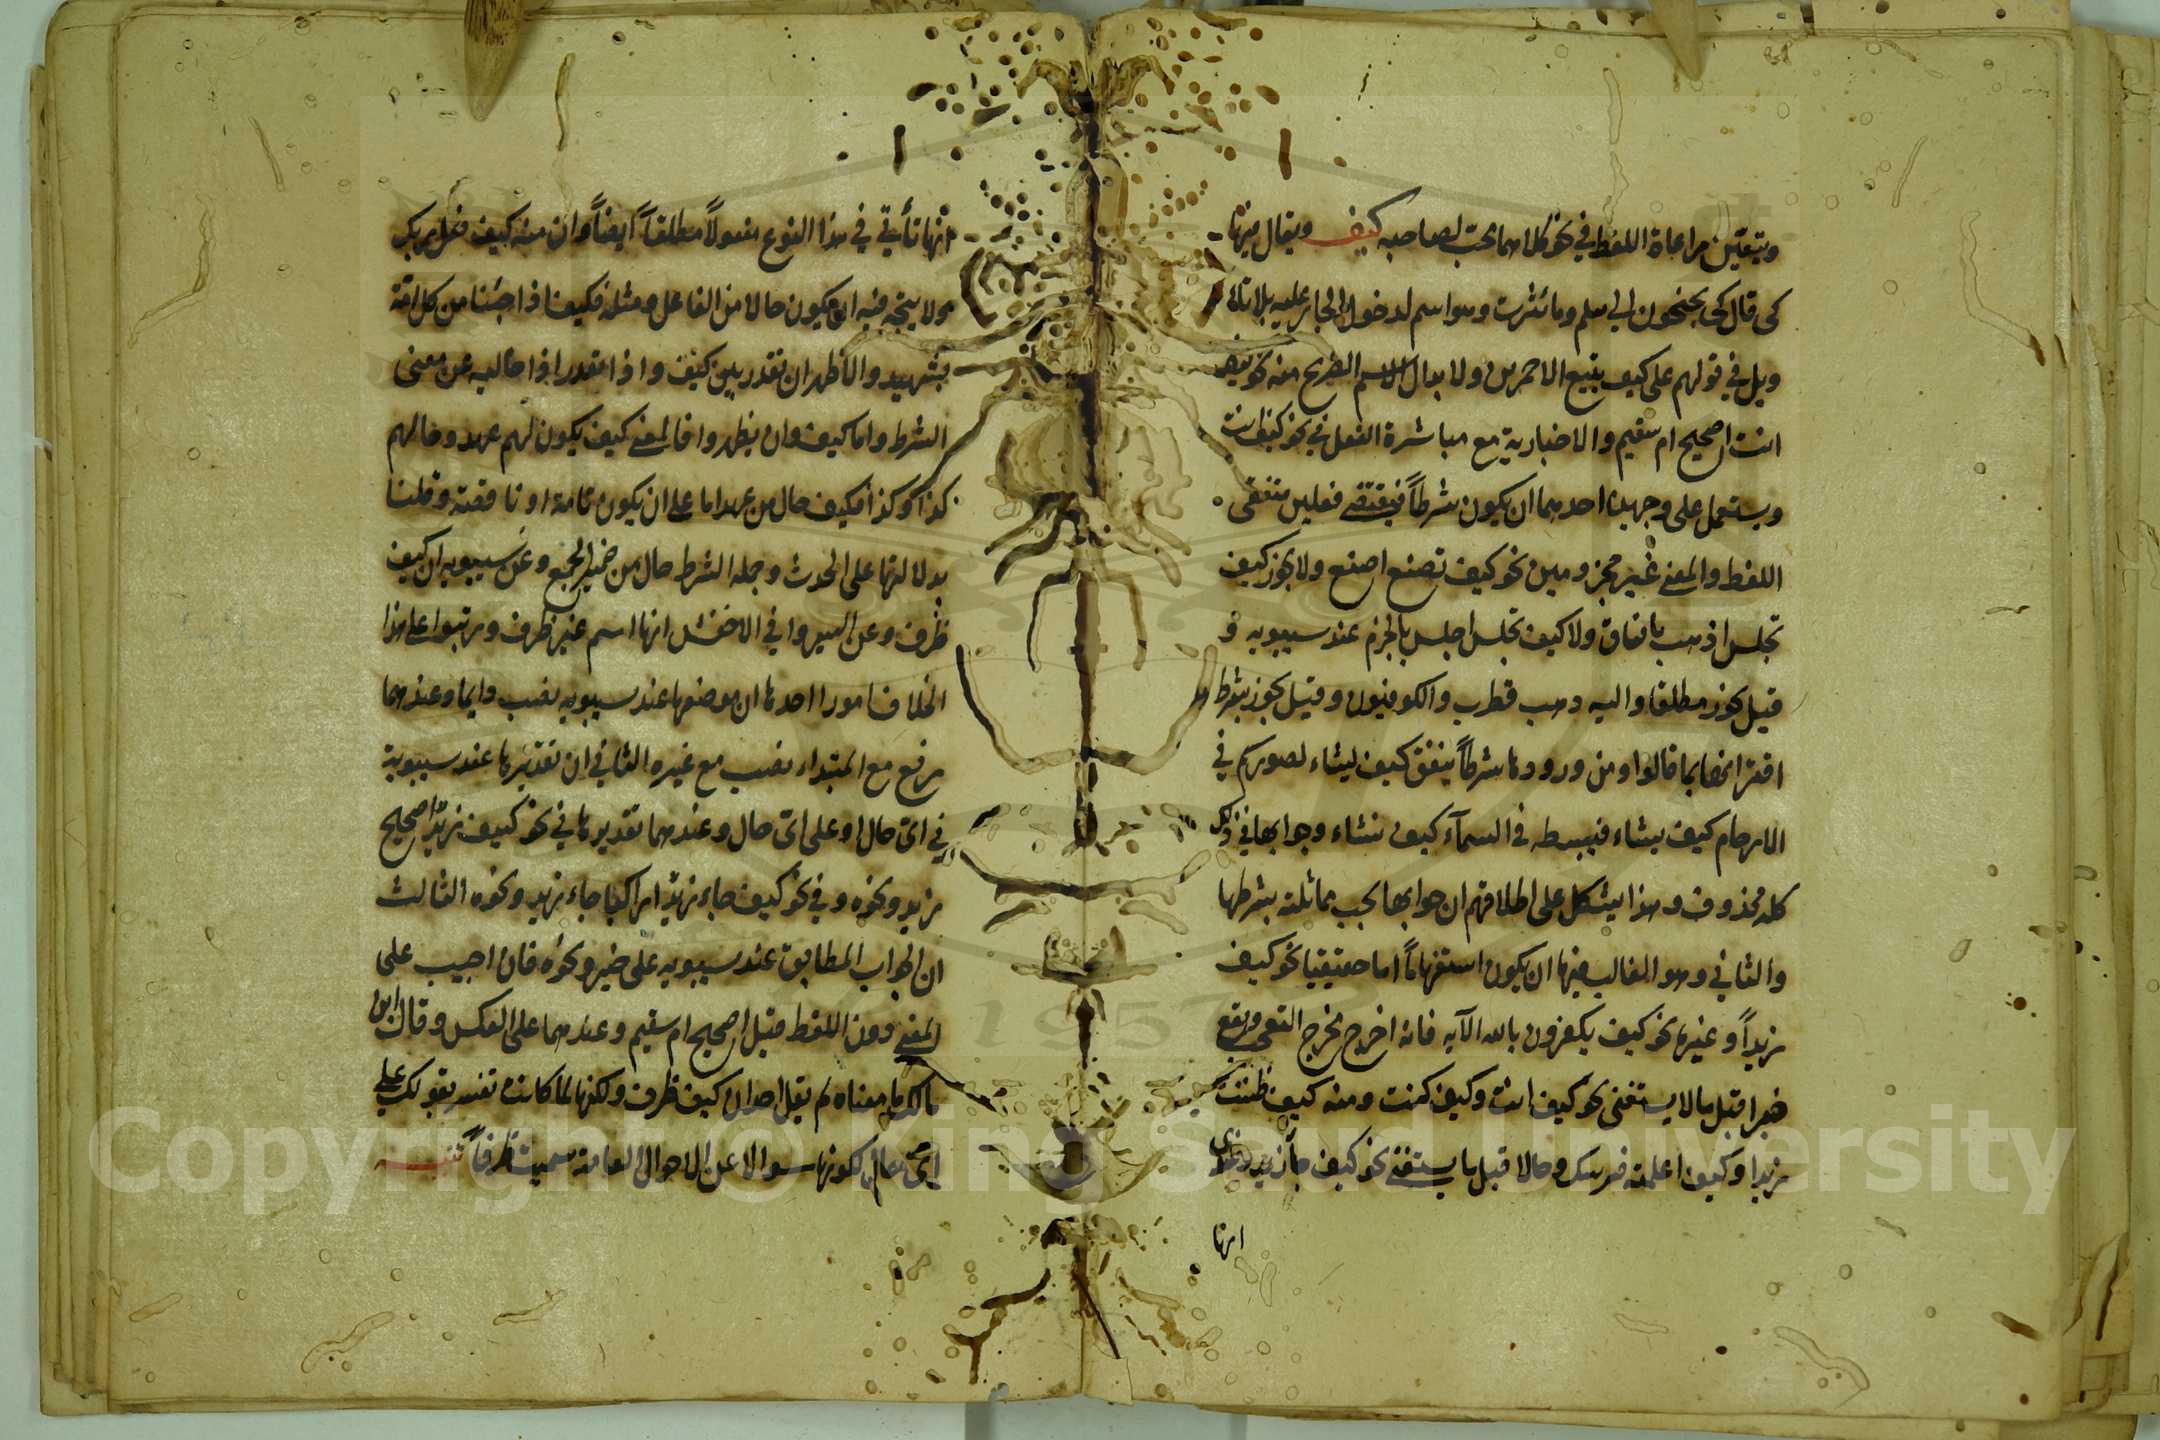 ويتعين مراعاة اللفظ في نحو كلاهما محب لصاحبه كيف ويقال فيها
كى قال كى تجنحون الى سلم وما ثئرت وهو اسم لدخول الجار عليه بلا تأ
ويل في قولهم على كيف تبيع الاحمرين ولابدال الاسم الصريح منه نحو كيف
انت اصحيح ام سقيم والاخبار به مع مباشرة الفعل في نحو كيف كنت
ويستعمل على وجهين احدهما ان يكون شرطاً فيقتضى فعلين متفقى
اللفظ والمعنى غير مجزومين نحو كيف تصنع اصنع ولا يجوز كيف
تجلس اذهب باتفاق ولا كيف تجلس اجلس بالجزم عند سيبويه و
قيل يجوز مطلقا واليه ذهب قطرب والكوفيون وقيل يجوز بشرط
اقترانها بما قالوا ومن ورودها شرطاً ينفق كيف يشاء يصوركم في
الارحام كيف يشاء فيبسطه في السمآء كيف يشاء وجوابها في ذلك
كله محذوف وهذا يشكل على اطلاقهم ان جوابها يجب مماثلته بشرطها
والثاني وهو الغالب فيها ان يكون استفهاماً اما حقيقيا نحو كيف
زيداً وغيره نحو كيف يكفرون بالله الآية فانه اخرج مخرج التعجب ويقع
خبرا قبل مالا يستغنى نحو كيف انت وكيف كنت ومنه كيف ظننت
زيدا وكيف اعلمته فرسك وحالا قبل ما يستغنى نحو كيف جاء زيد وعندي
انها
انها تأتي في هذا النوع مفعولاً مطلقاً ايضاً وان منه كيف فعل ربك
ولا يتجه فيه ان يكون حالا من الفاعل ومثله فكيف اذا جئنا من كل امة
بشهيد والاظهر ان تقدر بين كيف واذا تقدر اذا خالية عن معنى
الشرط واما كيف وان يظهروا فالمعنى كيف يكون لهم عهد وحالهم
كذا وكذا فكيف حال من عهد اما على ان يكون تامة او ناقصة وقلنا
بدلالتها على الحدث وجملة الشرط حال من ضمير الجمع وعن سيبويه ان كيف
ظرف وعن السيرافي والاخفش انها اسم غير ظرف ورتبوا على هذا
الخلاف امورا احدها ان موضعها عند سيبويه نصب دايما وعندهما
رفع مع المبتداء نصب مع غيره الثاني ان تقديرها عند سيبوية
في اى حال او على اى حال وعندهما تقديرها في نحو كيف زيد اصحيح
زيد ونحوه وفي نحو كيف جاء زيد اراكبا جاء زيد ونحوه الثالث
ان الجواب المطابق عند سيبويه على خير ونحوه فان اجيب على
المعنى دون اللفظ قيل صحيح ام سقيم وعندهما على العكس وقال ابن
مالك ما معناه لم يقل احد ان كيف ظرف ولكنها لما كانت تفسر بقولك على
اى حال لكونها سوالا عن الاحوال العامة سميت ظرفاً تنبيه